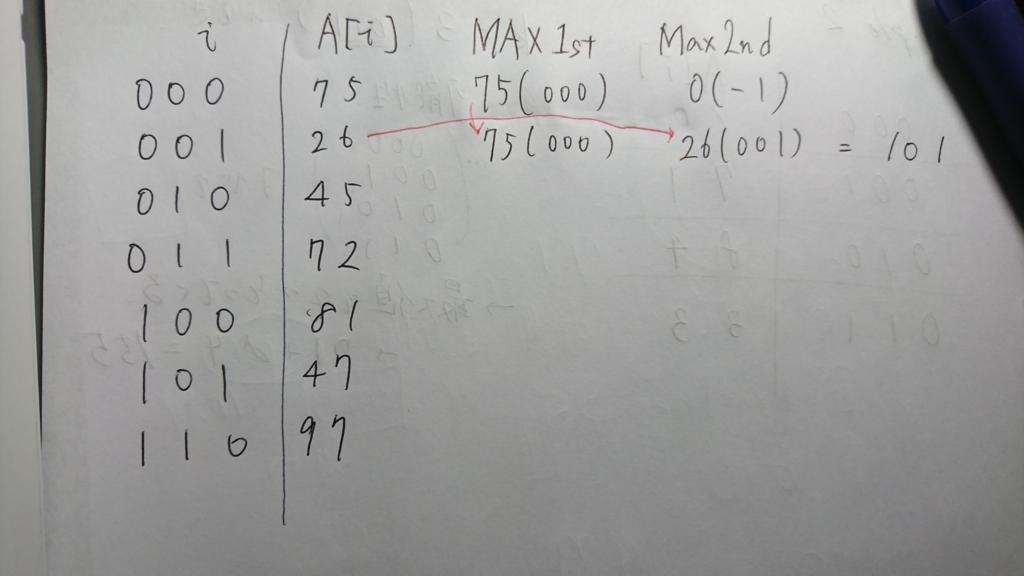 i A[i] MAX 1st Max 2nd
000 75 75(000) 0(-1)
001 26 75(000) 26(001) = 101
010 45
011 72
100 81
101 47
110 97